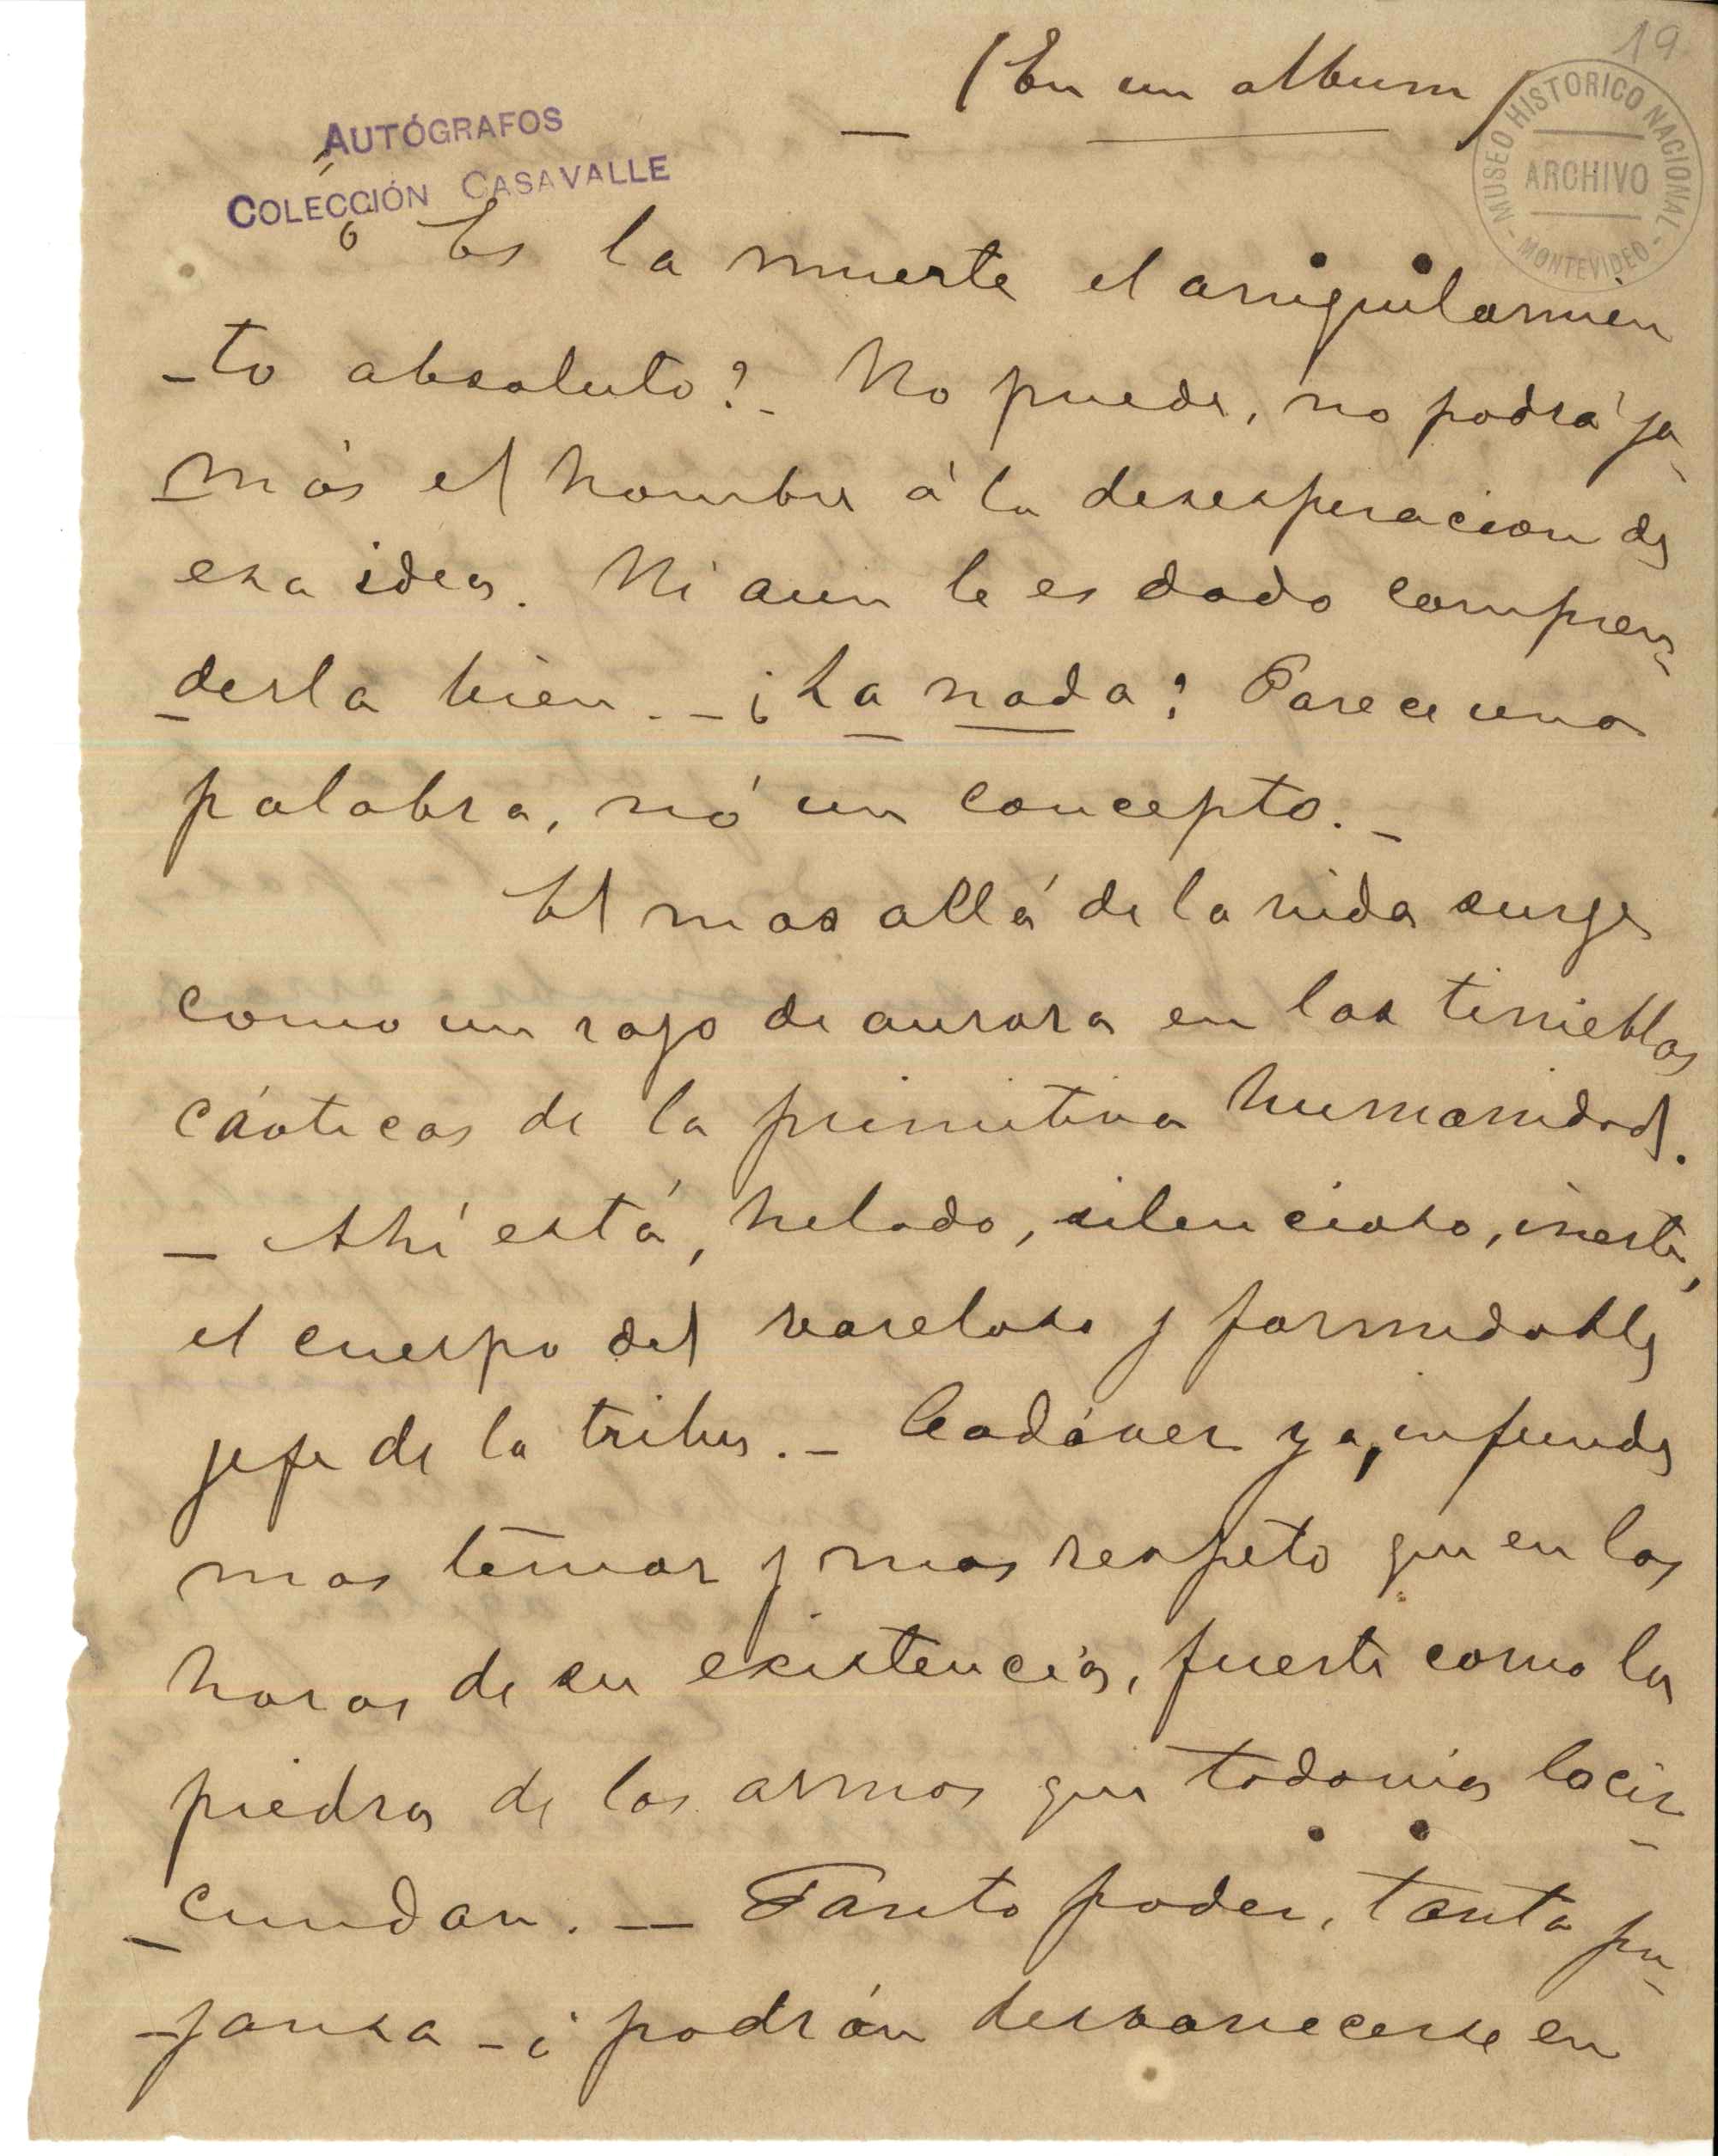 19
(En un album)
AUTÓGRAFOS
COLECCIÓN CASAVALLE
MUSEO HISTORICO NACIONAL
ARCHIVO
- MONTEVIDEO -
¿ Es la muerte el aniquilamien
-to absoluto?- No puede, no podrá ja-
-más el hombre á la desesperacion de
esa idea. Ni aun le es dado compren-
-derla bien.-¡La nada! Parece una
palabra, nó un concepto.-
El mas allá de la vida surge
como un rayo de aurora en las tinieblas
cáoticas de la primitiva humanidad.
- Ahí está, helado, silencioso, inerte,
el cuerpo del formidable
jefe de la tribu.- Cadáver ya, infunde
mas temor y mas respeto que en las
horas de su existencia, fuerte como la
piedra de las armas que todavia lo cir-
-cundan.- Tanto poder, tanta pu-
-janza -¿podrán desvanecerse en